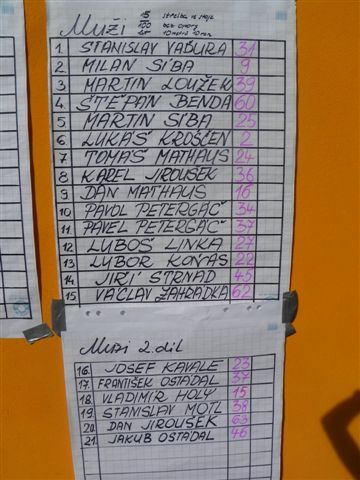 Muži
1. STANISLAV VAĎURA 31
2. MILAN SÍBA 9
3 MARTIN LOUŽEK 39
4. ŠTĚPÁN BENDA 60
5 MARTIN SÍBA 25
6 LUKÁŠ KROŠČEN 2
7 TOMÁŠ MATHAUS 24
8 KAREL JIROUŠEK 36
9 DAN MATHAUS 16
10 PAVOL PETERGÁČ 34
11 PAVEL PETERGÁČ 37
12 LUBOŠ LINKA 27
13 LUBOR 22
14 JIŘÍ STRNAD 45
15 VÁCLAV ZAHRÁDKA 62
Muži 2.díl
16. JOSEF KAVALE 23
17. FRANTIŠEK OSTÁDAL 37
18. VLADIMÍR HOLÝ 15
19 STANISLAV MOTL 38
20. DAN JIROUŠEK 63
21. JAKUB OSTÁDAL 46